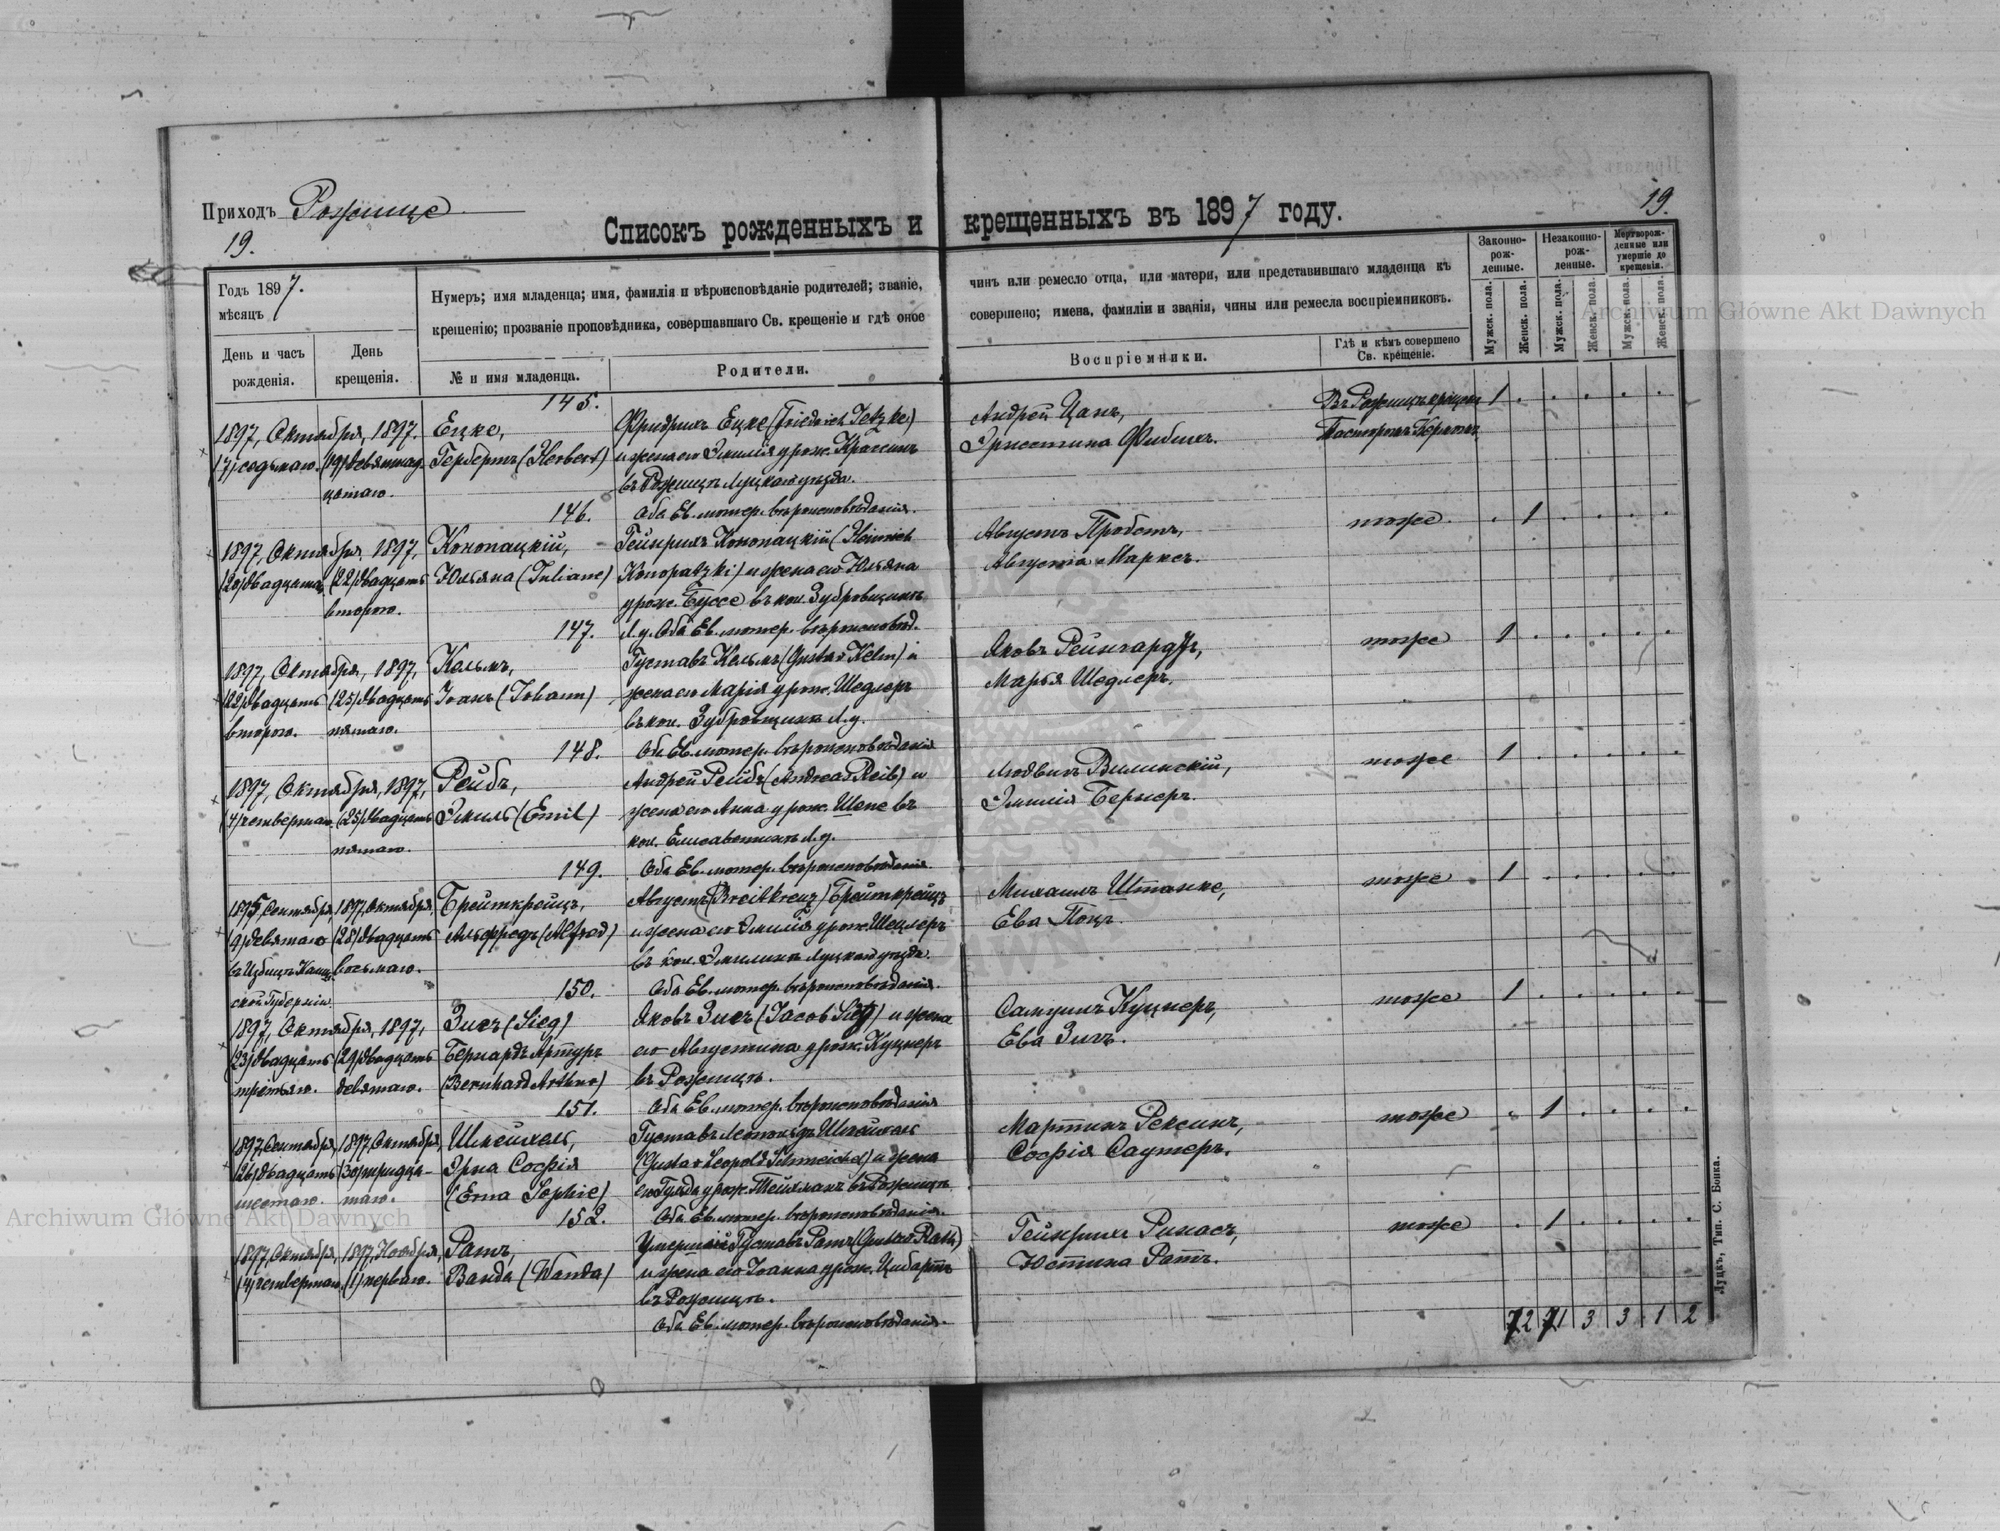 Приходъ Рожище
19.
19.
Списокъ рожденныхъ и крещенныхъ въ 1897 году.
Годъ 1897.
мѣсяцъ
День и часъ рожденія.
День крещенія.
Нумеръ; имя младенца; имя, фамилія и вѣроисповѣданіе родителей; званіе, чинъ или ремесло отца, или матери, или представившаго младенца къ
крещенію; прозваніе проповѣдника, совершавшаго Св. крещеніе и гдѣ оное совершено; имена, фамиліи и званія, чины или ремесла воспріемниковъ.
№ и имя младенца.
Родители.
Воспріемники.
Гдѣ и кѣмъ совершено Св. крещеніе.
Законно-рож-денные.
Незаконно-рож-денные.
Мертворож-денные или умершіе до крещенія.
Мужск. пола.
Женск. пола.
Мужск. пола.
Женск. пола.
Мужск. пола.
Женск. пола.
145.
1897, Октября, 1897. Ецке, Фридрихъ Ецке (Friedrich Jetzke) Андрей Цанъ, Въ Рожищѣ крещенъ 1
(7) седьмаго. (19) девятнад- Гербертъ (Herbert) и жена его Эмилія урож. Эрнстина Фибихъ. Пасторомъ
цатаго. въ Рожищѣ Луцкаго уѣзда.
146. Оба Ев. лютер. вѣроисповѣданія.
1897, Октября, 1897, Конопацкій, Гейнрихъ Конопацкій (Heinrich Августъ Пробстъ, тоже. 1
(20) двадцатаго (22) двадцать Юльяна (Juliane) Konopatzki) и жена его Юльяна Августа Марксъ.
втораго. урож. Буссе въ кол. Зубровщинѣ
147. Л. у. Оба Ев. лютер. вѣроисповѣд.
1897, Октября, 1897, Кельмъ, Густавъ Кельмъ (Gustav Kelm) и Яковъ Рейнгардъ, тоже 1
(22) двадцать (25) двадцать Іоанъ (Johann) жена его Марія урож. Шедлеръ Марья Шедлеръ.
втораго. пятаго. въ кол. Зубровщинѣ Л. у.
148. Оба Ев. лютер. вѣроисповѣданія
1897, Октября, 1897, Рейбъ, Андрей Рейбъ (Andreas Reib) и Людвигъ Вилинскій, тоже 1
(4) четвертаго (25) двадцать Эмиль (Emil) жена его Анна урож. Шепе въ Эмилія Бернеръ.
пятаго. кол. Елисаветинѣ Л. у.
149. Оба Ев. лютер. вѣроисповѣданія
1895, Сентября, 1897, Октября, Брейткрейцъ, Августъ (Breitkreuz) Брейткрейцъ Михаилъ Штанке, тоже 1
(9) девятаго (28) двадцать Альфредъ (Alfred) и жена его Эмилія урож. Шецлеръ Ева Поцъ.
восьмаго. въ кол. Эмилинѣ Луцкаго уѣзда.
ской Губерніи
150. Оба Ев. лютер. вѣроисповѣданія.
1897, Октября, 1897, Зигъ (Sieg) Яковъ Зигъ (Jacob Sieg) и жена Самуилъ Куцнеръ, тоже 1
(23) двадцать (29) двадцать Бернардъ Артуръ его Августина урож. Куцнеръ Ева Зигъ.
третьяго. девятаго. (Bernhard Arthur) въ Рожищѣ.
151. Оба Ев. лютер. вѣроисповѣданія
1897, Сентября, 1897, Октября, Шмейхель, Густавъ Леопольдъ Шмейхель Мартинъ Рексинъ, тоже 1
(26) двадцать (30) тридца- Эрна Софія (Gustav Leopold Schmeichel) и жена Софія Саутеръ.
шестаго. таго. (Erna Sophie) его Гульда урож. въ Рожищѣ
152. Оба Ев. лютер. вѣроисповѣданія.
1897, Октября, 1897, Ноября, Ратъ, Умершій Густавъ Ратъ (Gustav Rath) Гейнрихъ Ринасъ, тоже 1
(4) четвертаго (1) перваго. Ванда (Wanda) и жена его Іоанна урож. Цибартъ Юстина Ратъ.
въ Рожищѣ.
Оба Ев. лютер. вѣроисповѣданія.
72 71 3 3 1 2
Луцкъ, Тип. С. Бонка.
Archiwum Główne Akt Dawnych
Archiwum Główne Akt Dawnych